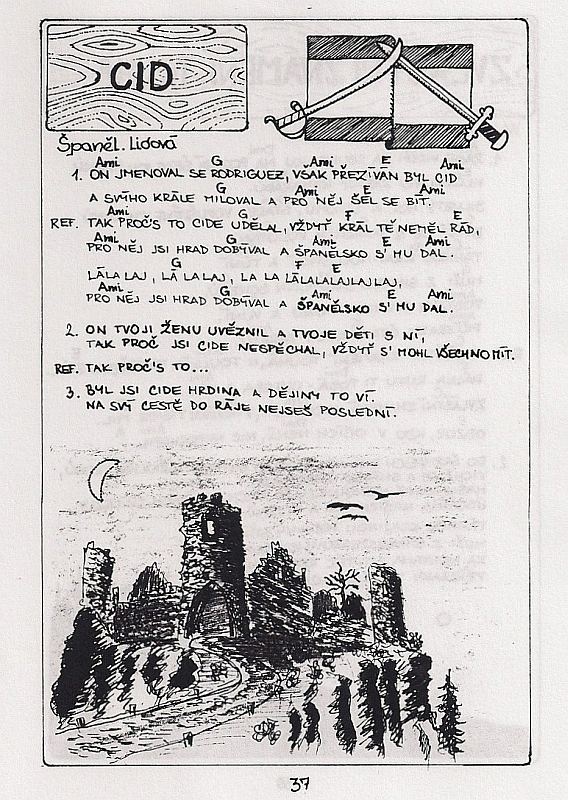 CID
Španěl. lidová
Ami G Ami E Ami
1. ON JMENOVAL SE RODRIGUEZ, VŠAK PŘEZÍVÁN BYL CID
G Ami E Ami
A SVÝHO KRÁLE MILOVAL A PRO NĚJ ŠEL SE BÍT.
Ami G F E
REF. TAK PROČ'S TO CIDE UDĚLAL, VŽDYŤ KRÁL TĚ NEMĚL RÁD,
Ami G Ami E Ami
PRO NĚJ JSI HRAD DOBÝVAL A ŠPANĚLSKO S' MU DAL.
G F E
LÁLA LAJ, LÁ LA LAJ, LA LA LÁLALALAJLAJLAJ,
Ami G Ami E Ami
PRO NĚJ JSI HRAD DOBÝVAL A ŠPANĚLSKO S' MU DAL.
2. ON TVOJI ŽENU UVĚZNIL A TVOJE DĚTI S NÍ,
TAK PROČ JSI CIDE NESPĚCHAL, VŽDYŤ S' MOHL VŠECHNO MÍT.
REF. TAK PROČ'S TO...
3. BYL JSI CIDE HRDINA A DĚJINY TO VÍ.
NA SVÝ CESTĚ DO RÁJE NEJSEŠ POSLEDNÍ.
37